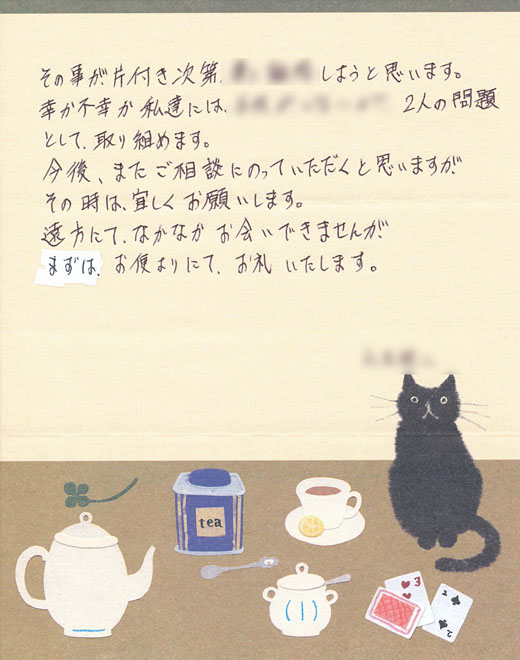 その事が片付き次第、しようと思います。
幸か不幸か私達には、2人の問題
として、取り組めます。
今後、またご相談にのっていただくと思いますが
その時は、宜しくお願いします。
遠方にて、なかなかお会いできませんが
まずは、お便りにて、お礼いたします。
tea
3